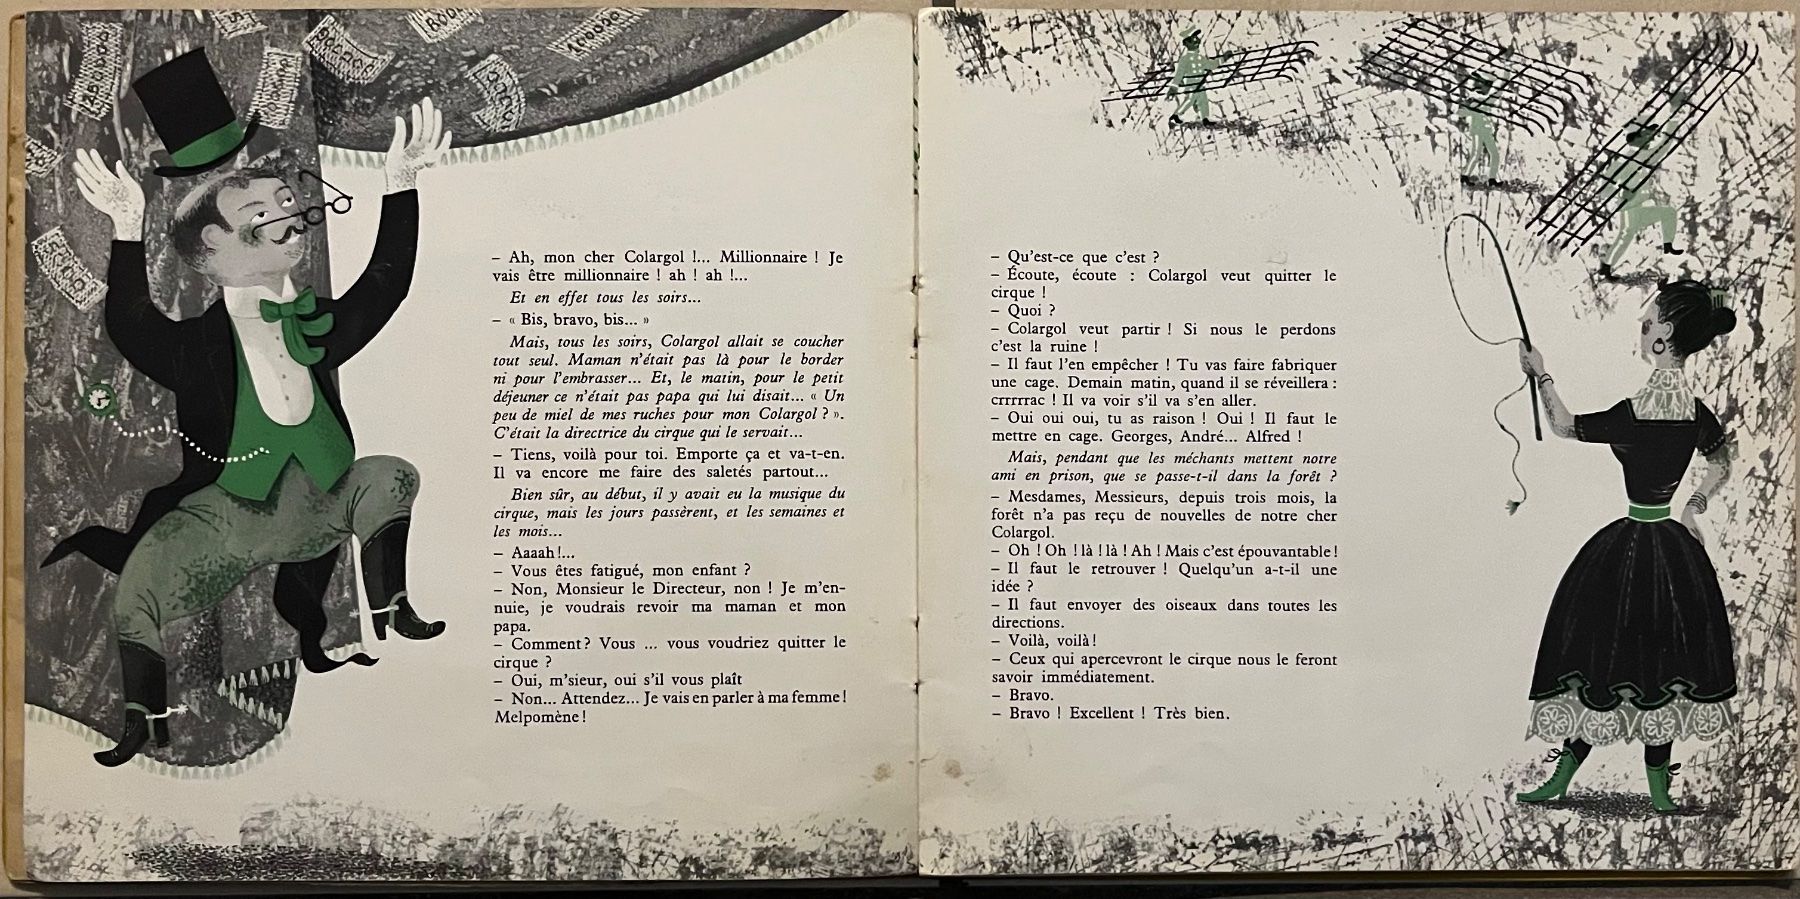 – Ah, mon cher Colargol !... Millionnaire ! Je
vais être millionnaire ! ah ! ah !...
Et en effet tous les soirs...
– « Bis, bravo, bis... »
Mais, tous les soirs, Colargol allait se coucher
tout seul. Maman n'était pas là pour le border
ni pour l'embrasser... Et, le matin, pour le petit
déjeuner ce n'était pas papa qui lui disait... « Un
peu de miel de mes ruches pour mon Colargol ? ».
C'était la directrice du cirque qui le servait...
– Tiens, voilà pour toi. Emporte ça et va-t-en.
Il va encore me faire des saletés partout...
Bien sûr, au début, il y avait eu la musique du
cirque, mais les jours passèrent, et les semaines et
les mois...
– Aaaah !...
– Vous êtes fatigué, mon enfant ?
– Non, Monsieur le Directeur, non ! Je m'en-
nuie, je voudrais revoir ma maman et mon
papa.
– Comment ? Vous ... vous voudriez quitter le
cirque ?
– Oui, m'sieur, oui s'il vous plaît
– Non... Attendez... Je vais en parler à ma femme !
Melpomène !
– Qu'est-ce que c'est ?
– Écoute, écoute : Colargol veut quitter le
cirque !
– Quoi ?
– Colargol veut partir ! Si nous le perdons
c'est la ruine !
– Il faut l'en empêcher ! Tu vas faire fabriquer
une cage. Demain matin, quand il se réveillera :
crrrrrac ! Il va voir s'il va s'en aller.
– Oui oui oui, tu as raison ! Oui ! Il faut le
mettre en cage. Georges, André... Alfred !
Mais, pendant que les méchants mettent notre
ami en prison, que se passe-t-il dans la forêt ?
– Mesdames, Messieurs, depuis trois mois, la
forêt n'a pas reçu de nouvelles de notre cher
Colargol.
– Oh ! Oh ! là ! là ! Ah ! Mais c'est épouvantable !
– Il faut le retrouver ! Quelqu'un a-t-il une
idée ?
– Il faut envoyer des oiseaux dans toutes les
directions.
– Voilà, voilà !
– Ceux qui apercevront le cirque nous le feront
savoir immédiatement.
– Bravo.
– Bravo ! Excellent ! Très bien.